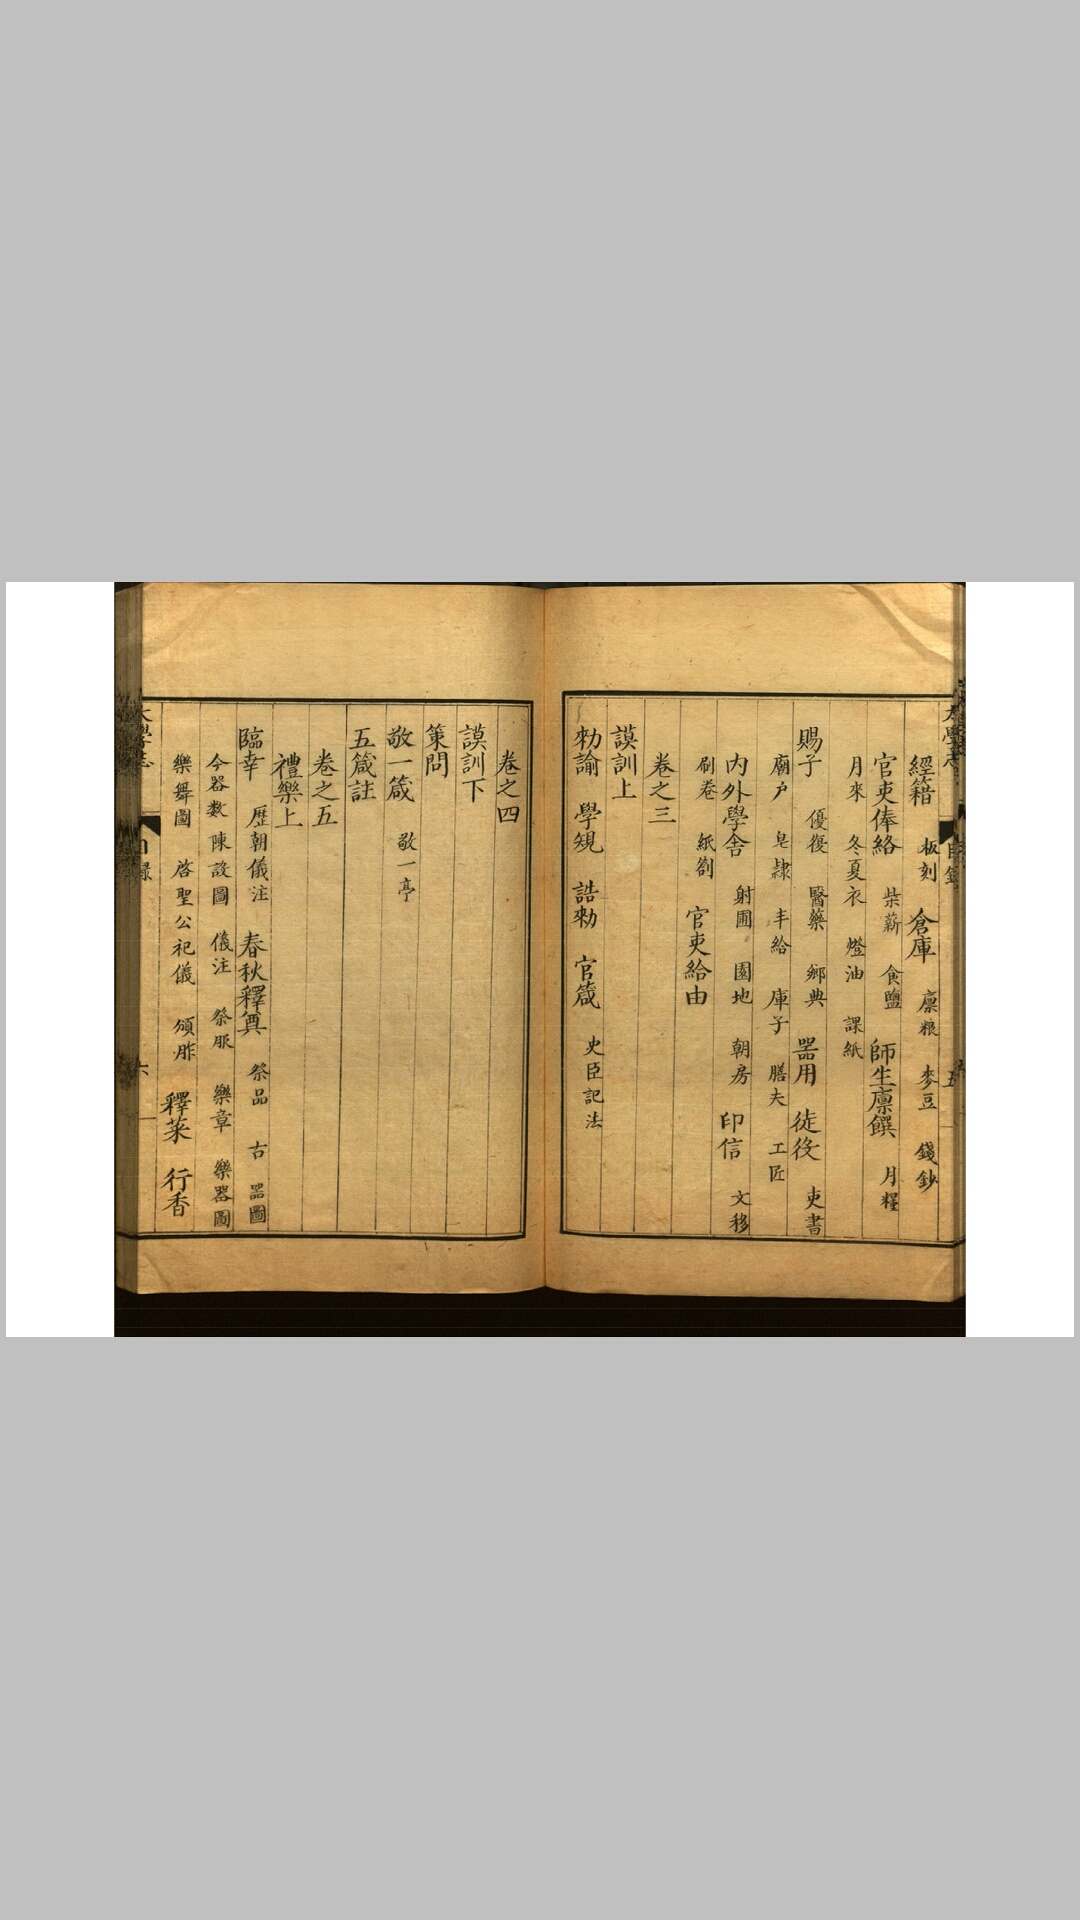 經籍 板刻 倉庫 廩粮 麥豆 錢鈔
官吏俸絡 柴薪 食鹽 師生廩饌 月糧
月米 冬夏衣 燈油 課紙
賜予 優復 醫藥 鄉典 器用 徒役 吏書
廟户 皂隷 丰給 庫子 膳夫 工匠
内外學舍 射圃 園地 朝房 印信 文移
刷卷 紙劄 官吏給由
卷之三
謨訓上
勑諭 學䂓 誥勑 官箴 史臣記法
卷之四
謨訓下
策問
敬一箴 敬一亭
五箴註
卷之五
禮樂上
臨幸 歷朝儀注 春秋釋奠 祭品 古器圖
今器數 陳設圖 儀注 祭服 樂章 樂器圖
樂舞圖 啓聖公祀儀 頒胙 釋菜 行香
大學志 目録 六